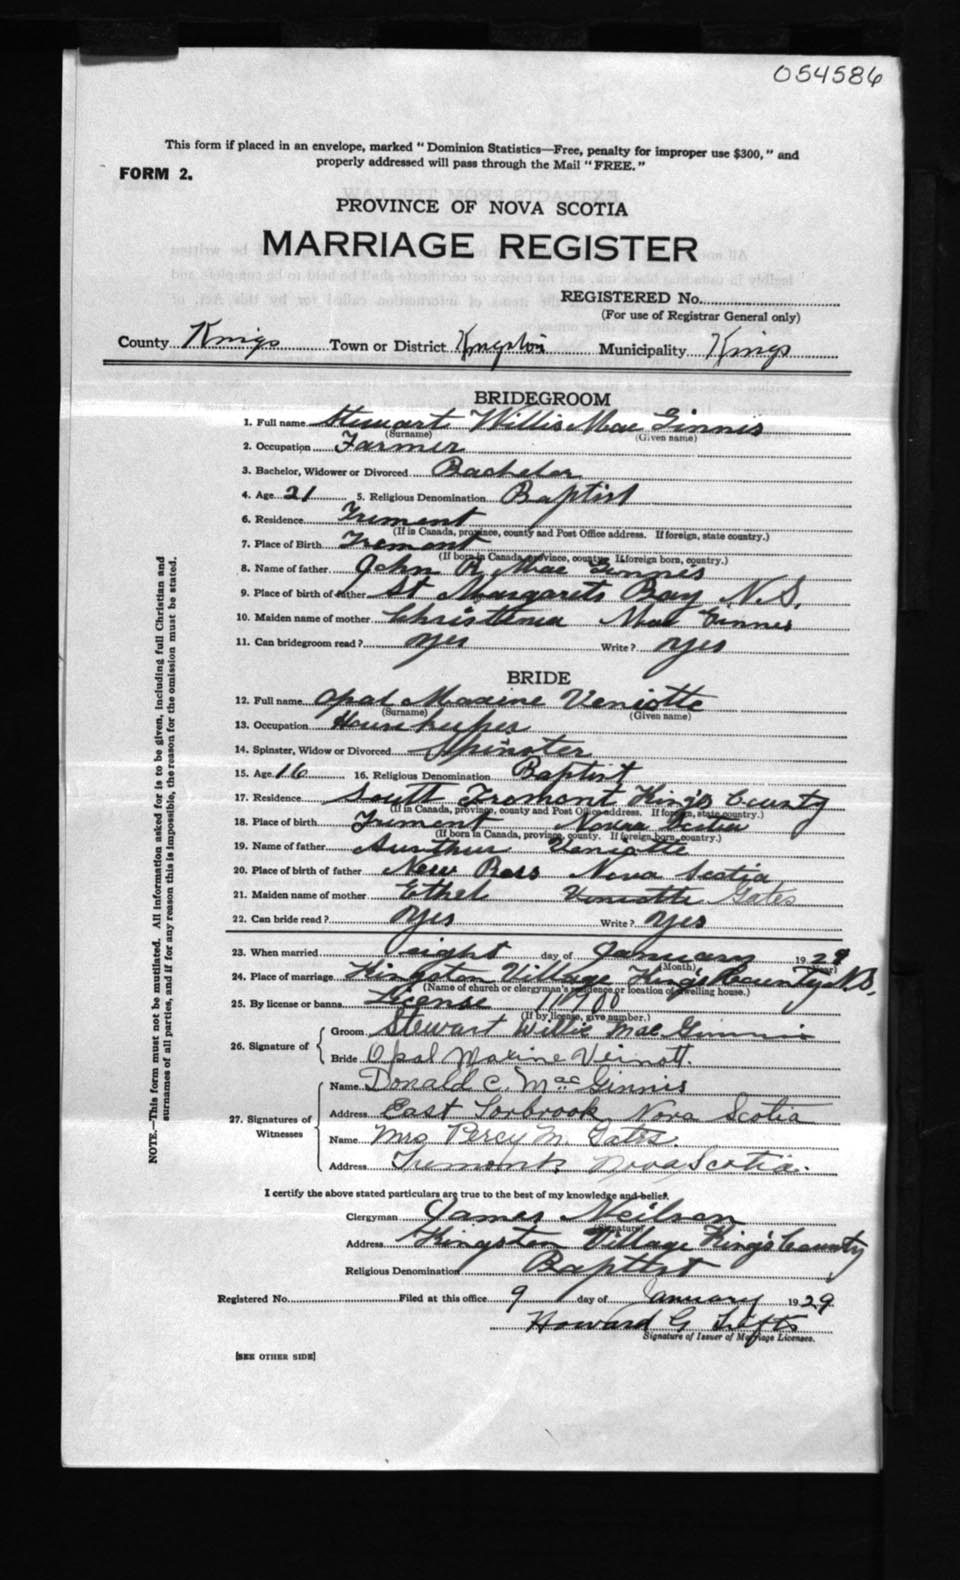 054586
This form if placed in an envelope, marked "Dominion Statistics—Free, penalty for improper use $300," and
properly addressed will pass through the Mail "FREE."
FORM 2.
PROVINCE OF NOVA SCOTIA
MARRIAGE REGISTER
REGISTERED No.
(For use of Registrar General only)
County Kings Town or District Kingston Municipality Kings
BRIDEGROOM
1. Full name Stewart Willis Mac Ginnis
(Surname) (Given name)
2. Occupation Farmer
3. Bachelor, Widower or Divorced Bachelor
4. Age 21 5. Religious Denomination Baptist
6. Residence Tremont
(If in Canada, province, county and Post Office address. If foreign, state country.)
7. Place of Birth Tremont
(If born in Canada, province, county. If foreign born, country.)
8. Name of father John R Mac Ginnis
9. Place of birth of father St Margarets Bay N.S.
10. Maiden name of mother Christenia Mac Ginnis
11. Can bridegroom read? Yes Write? Yes
BRIDE
12. Full name Opal Maxine Veniotte
(Surname) (Given name)
13. Occupation Housekeeper
14. Spinster, Widow or Divorced Spinster
15. Age 16 16. Religious Denomination Baptist
17. Residence South Tremont King's County
(If in Canada, province, county and Post Office address. If foreign, state country.)
18. Place of birth Tremont Nova Scotia
(If born in Canada, province, county. If foreign born, country.)
19. Name of father Aurthur Veniotte
20. Place of birth of father New Ross Nova Scotia
21. Maiden name of mother Ethel Veniotte Gates
22. Can bride read? Yes Write? Yes
23. When married Eight day of January 1929
(Month) (Year)
24. Place of marriage Kingston Village King's County N.S.
(Name of church or clergyman's residence or location of dwelling house.)
25. By license or banns License
(If by license, give number.)
26. Signature of
Groom Stewart Willis Mac Ginnis
Bride Opal Maxine Vernott.
27. Signatures of Witnesses
Name Donald C. Mac Ginnis
Address East Torbrook Nova Scotia
Name Mrs Percy M. Gates.
Address Tremont Nova Scotia.
I certify the above stated particulars are true to the best of my knowledge and belief.
Clergyman James Neilson
(Signature)
Address Kingston Village King's County
Religious Denomination Baptist
Registered No. Filed at this office 9 day of January 1929
Howard G
Signature of Issuer of Marriage Licenses.
[SEE OTHER SIDE]
NOTE.—This form must not be mutilated. All information asked for is to be given, including full Christian and
surnames of all parties, and if for any reason this is impossible, the reason for the omission must be stated.